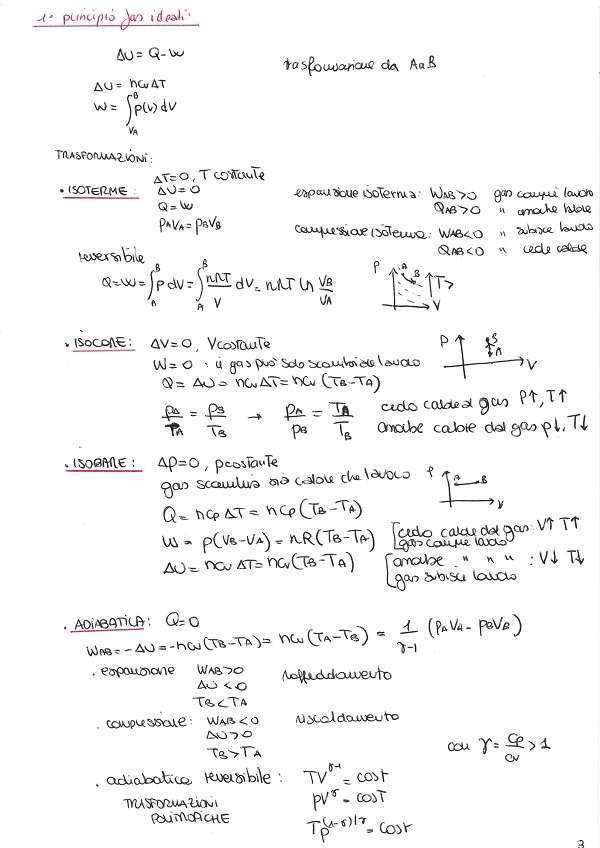 1° principio gas ideali:
ΔU = Q - W
trasformazione da A a B
ΔU = ncvΔT
W = ∫ p(v) dV
B
VA
TRASFORMAZIONI:
• ISOTERME: ΔT=0, T costante
ΔU=0
Q=W
PAVA = PBVB
espansione isoterma: WAB>0 gas compie lavoro
QAB>0 " assorbe calore
compressione isoterma: WAB<0 " subisce lavoro
QAB<0 " cede calore
reversibile
Q=W= ∫AB p dV = ∫AB nRT/V dV = nRT ln VB/VA
P A B T> V
• ISOCORE: ΔV=0, V costante
W=0 : il gas può solo scambiare
Q = ΔU = ncvΔT = ncv (TB-TA)
PA/TA = PB/TB → PA/PB = TA/TB
cedo calore al gas P↑, T↑
assorbe calore dal gas p↓, T↓
P B A V
• ISOBARE: Δp=0, p costante
gas scambia sia calore che lavoro
Q = ncpΔT = ncp (TB-TA)
W = p(VB-VA) = nR(TB-TA)
ΔU = ncvΔT = ncv(TB-TA)
P A B V
[cedo calore dal gas: V↑ T↑
gas compie lavoro
[assorbe " " " : V↓ T↓
gas subisce lavoro
• ADIABATICA: Q=0
WAB = -ΔU = -ncv(TB-TA) = ncv(TA-TB) = 1/γ-1 (PAVA - PBVB)
• espansione WAB>0 raffreddamento
ΔU<0
TB<TA
• compressione: WAB<0 riscaldamento
ΔU>0
TB>TA
con γ = cp/cv >1
• adiabatica reversibile: TV^γ-1 = cost
TRASFORMAZIONI PV^γ = cost
POLITROPICHE
Tp^(1-γ)/γ = cost
3